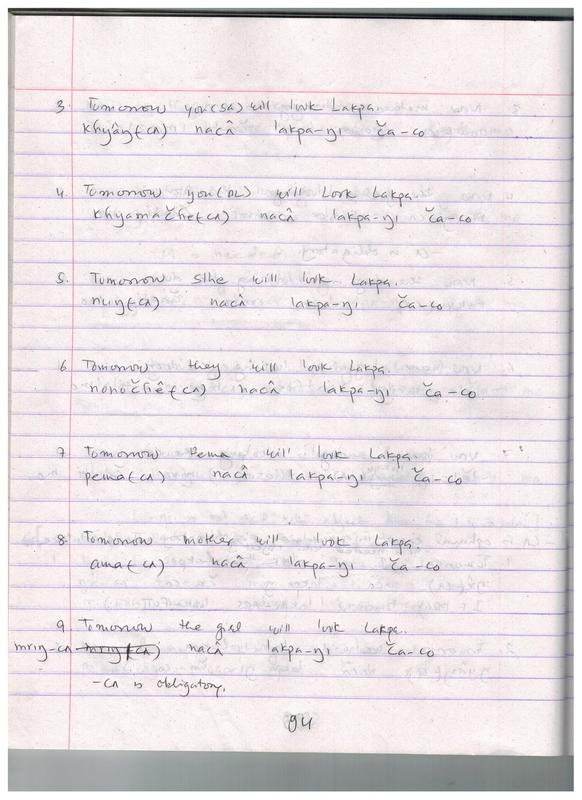 3. Tomorrow you(SG) will look Lakpa.
khyâŋ(-cʌ) nacʌ̂ lakpa-ŋi ča-co
4. Tomorrow you(PL) will look Lakpa.
khyamačhe(-cʌ) nacʌ̂ lakpa-ŋi ča-co
5. Tomorrow S/he will look Lakpa.
(-cʌ) nacʌ̂ lakpa-ŋi ča-co
6. Tomorrow they will look Lakpa.
nonočhê(-cʌ) nacʌ̂ lakpa-ŋi ča-co
7. Tomorrow Pema will look Lakpa.
pema(-cʌ) nacʌ̂ lakpa-ŋi ča-co
8. Tomorrow mother will look Lakpa.
ama(-cʌ) nacʌ̂ lakpa-ŋi ča-co
9. Tomorrow the girl will look Lakpa.
mriŋ-cʌ nacʌ̂ lakpa-ŋi ča-co
-cʌ is obligatory.
94